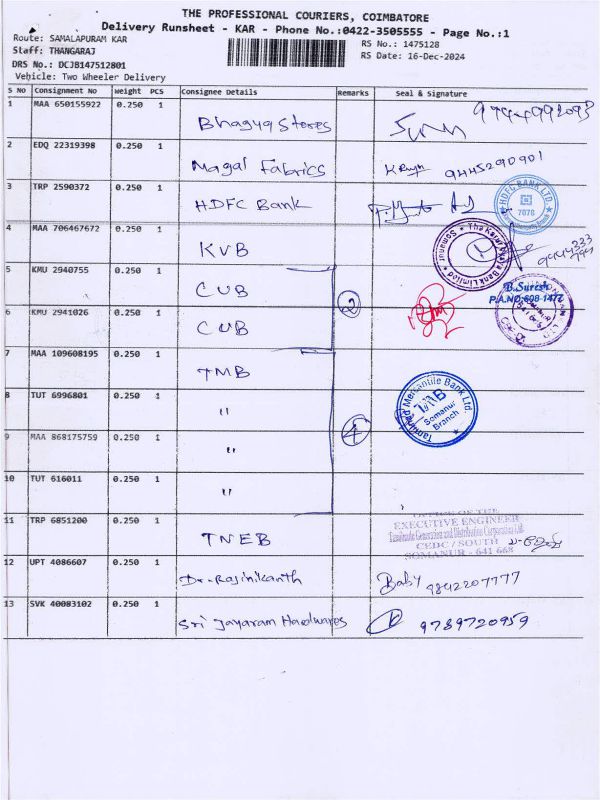 THE PROFESSIONAL COURIERS, COIMBATORE
Delivery Runsheet - KAR - Phone No.:0422-3505555 - Page No.:1
Route: SAMALAPURAM KAR
Staff: THANGARAJ
DRS No.: DCJB147512801
Vehicle: Two Wheeler Delivery
RS No.: 1475128
RS Date: 16-Dec-2024
S No Consignment No Weight PCS Consignee Details Remarks Seal & Signature
1 MAA 650155922 0.250 1 Bhagya Stores
2 EDQ 22319398 0.250 1 Magal Fabrics 9445290901
3 TRP 2590372 0.250 1 HDFC Bank
HDFC BANK LTD.
7078
4 MAA 706467672 0.250 1 KVB
5 KMU 2940755 0.250 1 CUB
B.Suresh
P.A.NO:608-1477
6 KMU 2941026 0.250 1 CUB
2
7 MAA 109608195 0.250 1 TMB
8 TUT 6996801 0.250 1 "
Tamilnad Mercantile Bank Ltd.
TMB
Somanur
Branch
9 MAA 868175759 0.250 1 "
4
10 TUT 616011 0.250 1 "
11 TRP 6851200 0.250 1 TNEB
OFFICE OF THE
EXECUTIVE ENGINEER
Tamilnadu Generation and Distribution Corporation Ltd.
CEDC / SOUTH
SOMANUR - 641 668
12 UPT 4086607 0.250 1 Dr. Rasinikanth Baby 9842207777
13 SVK 40083102 0.250 1 Sri Jayaram Hardwares 9789720959